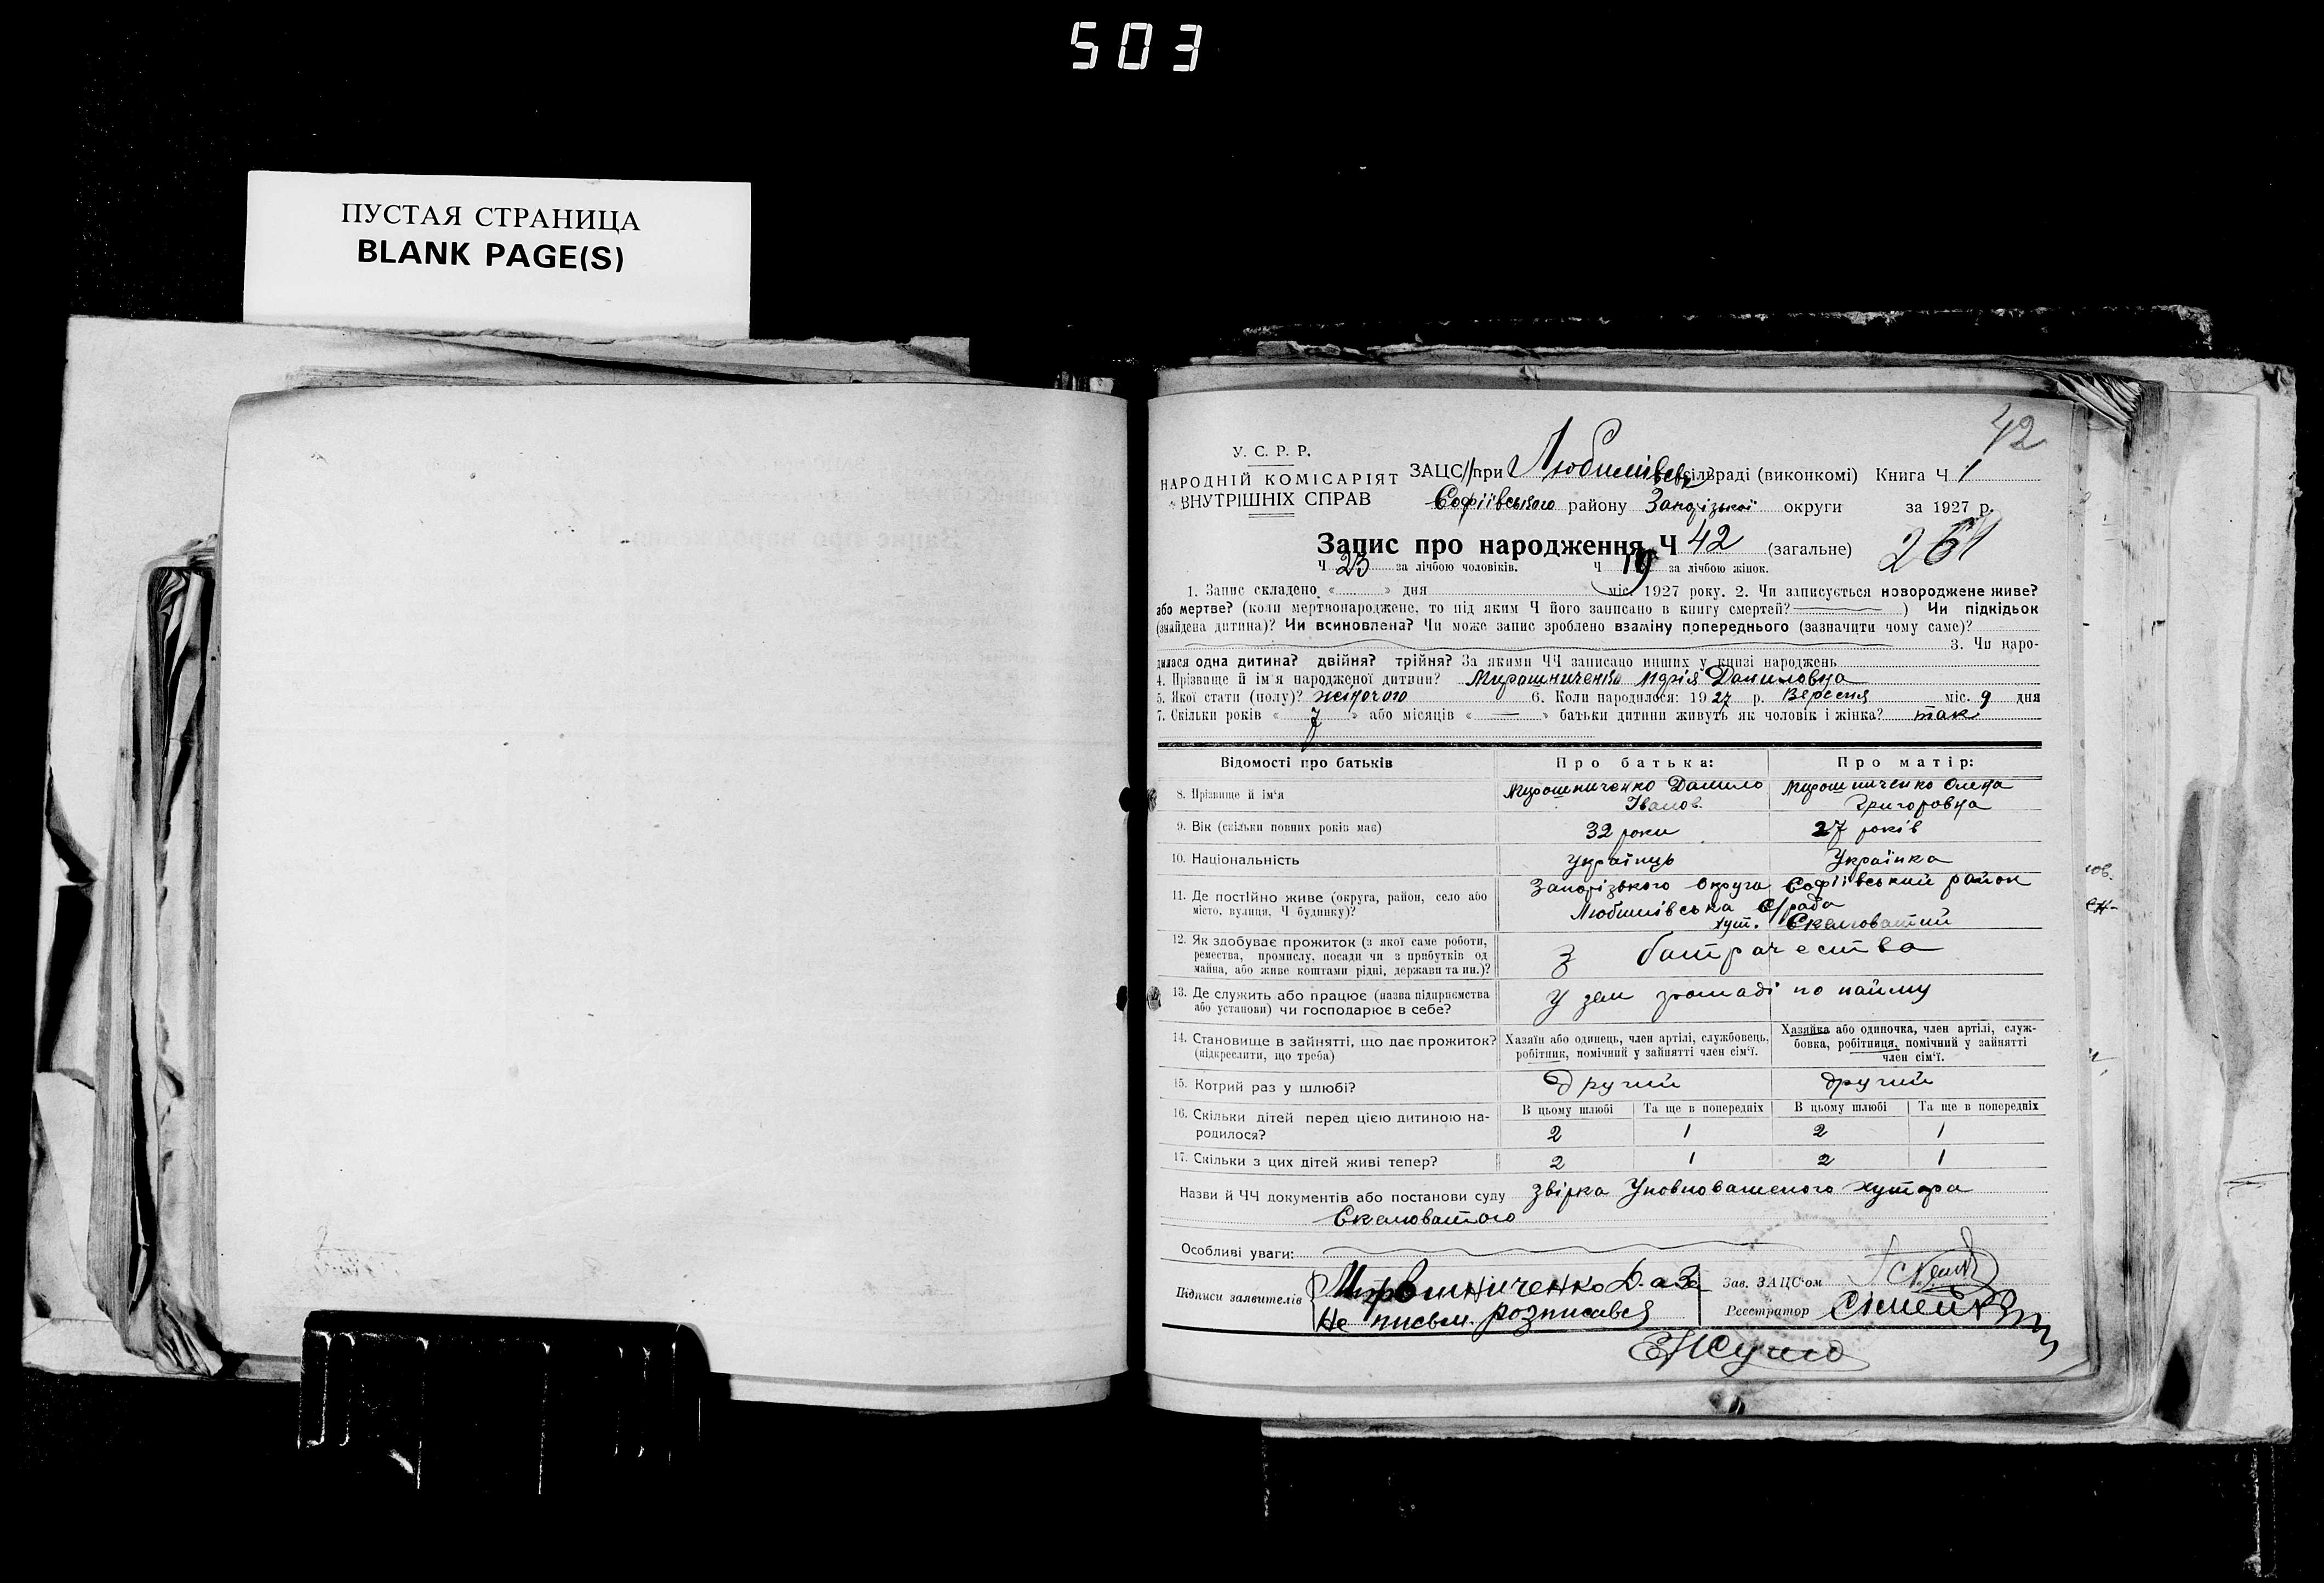 503
ПУСТАЯ СТРАНИЦА
BLANK PAGE(S)
42
У. С. Р. Р.
НАРОДНІЙ КОМІСАРІЯТ
ВНУТРІШНІХ СПРАВ
ЗАЦС при Любимівськ сільраді (виконкомі) Книга Ч 1
Софіївського району Запорізької округи за 1927 р.
Запис про народження Ч 42 (загальне) 264
Ч 23 за лічбою чоловіків. Ч 19 за лічбою жінок.
1. Запис складено « » дня міс. 1927 року. 2. Чи записується новороджене живе?
або мертве? (коли мертвонароджене, то під яким Ч його записано в книгу смертей? ) Чи підкідьок
(знайдена дитина)? Чи всиновлена? Чи може запис зроблено взаміну попереднього (зазначити чому саме)?
3. Чи наро-
дилася одна дитина? двійня? трійня? За якими ЧЧ записано инших у книзі народжень
4. Прізвище й ім'я народженої дитини? Мирошниченко Марія Даниловна
5. Якої стати (полу)? жіночого 6. Коли народилося: 1927 р. Вересня міс. 9 дня
7. Скільки років « 7 » або місяців « — » батьки дитини живуть як чоловік і жінка? так
Відомості про батьків Про батька: Про матір:
8. Прізвище й ім'я Мирошниченко Данило Іванов. Мирошниченко Олена Григоровна
9. Вік (скільки повних років має) 32 роки 27 років
10. Національність Українць Українка
11. Де постійно живе (округа, район, село або
місто, вулиця, Ч будинку)?
Запорізького округа Софіївський район
Любимівська с/рада
хут. Скелюватий
12. Як здобуває прожиток (з якої саме роботи,
ремества, промислу, посади чи з прибутків од
майна, або живе коштами рідні, держави та ин.)?
З батрачества
13. Де служить або працює (назва підприємства
або установи) чи господарює в себе?
У зем громаді по найму
14. Становище в зайнятті, що дає прожиток?
(підкреслити, що треба)
Хазяїн або одинець, член артілі, службовець,
робітник, помічний у зайнятті член сім'ї.
Хазяйка або одиночка, член артілі, служ-
бовка, робітниця, помічний у зайнятті
член сім'ї.
15. Котрий раз у шлюбі? Другий другий
16. Скільки дітей перед цією дитиною на-
родилося?
В цьому шлюбі Та ще в попередніх В цьому шлюбі Та ще в попередніх
2 1 2 1
17. Скільки з цих дітей живі тепер? 2 1 2 1
Назви й ЧЧ документів або постанови суду Звірка Уповноваженого хутора
Скелюватого
Особливі уваги:
Підписи заявителів Мирошниченко Д. а За
Не письм. розписався
Зав. ЗАЦС'ом
Реєстратор